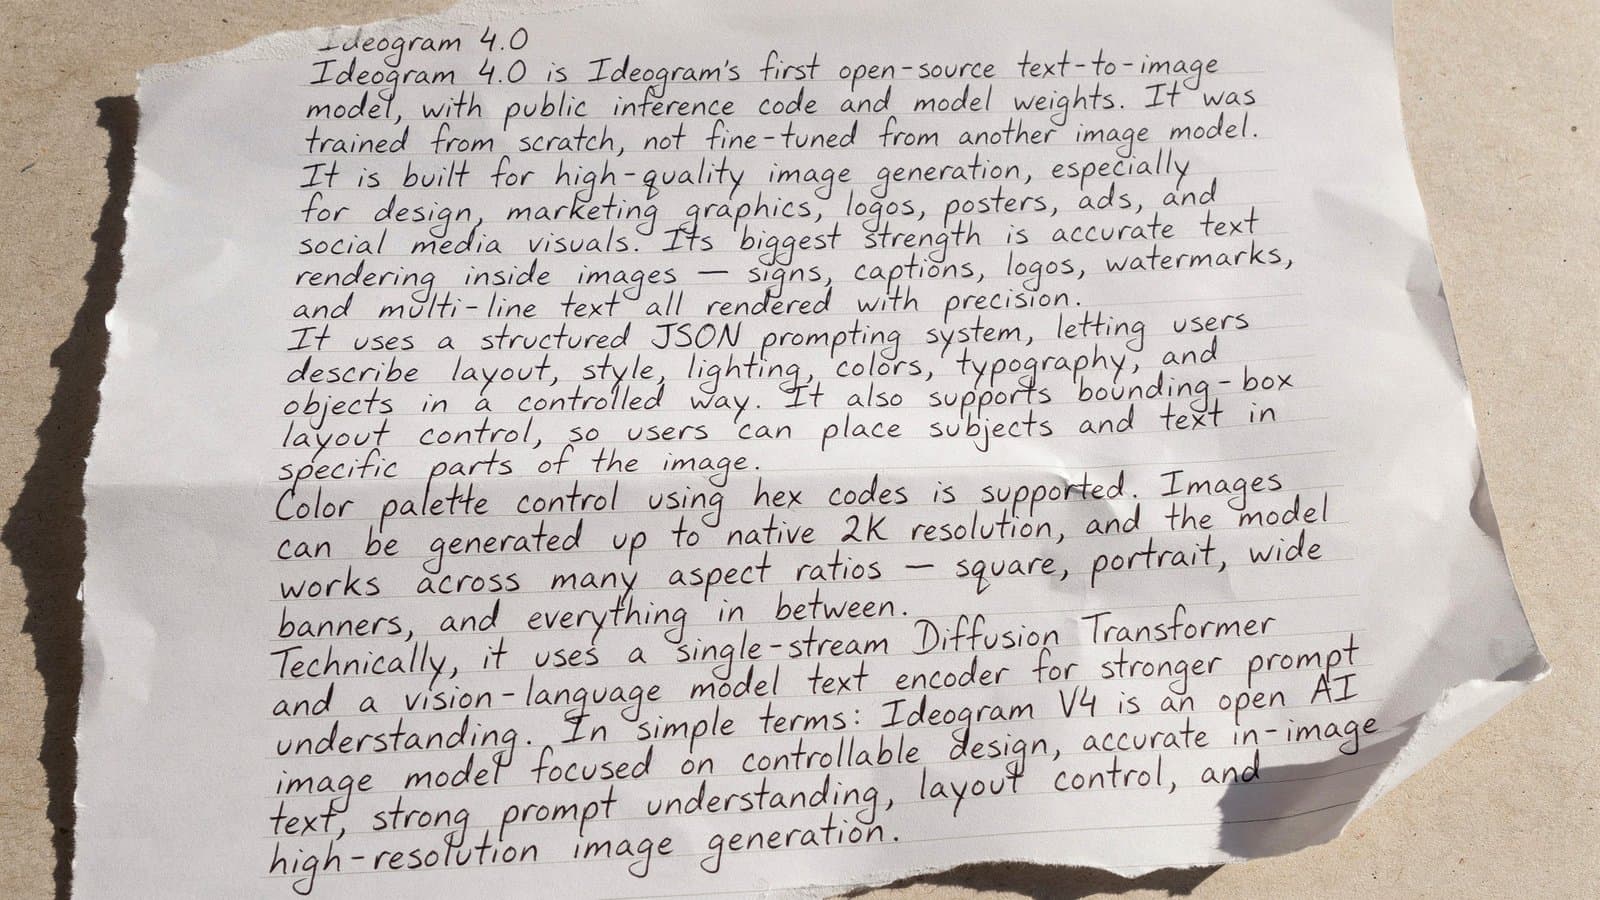 Ideogram 4.0
Ideogram 4.0 is Ideogram's first open-source text-to-image
model, with public inference code and model weights. It was
trained from scratch, not fine-tuned from another image model.
It is built for high-quality image generation, especially
for design, marketing graphics, logos, posters, ads, and
social media visuals. Its biggest strength is accurate text
rendering inside images — signs, captions, logos, watermarks,
and multi-line text all rendered with precision.
It uses a structured JSON prompting system, letting users
describe layout, style, lighting, colors, typography, and
objects in a controlled way. It also supports bounding-box
layout control, so users can place subjects and text in
specific parts of the image.
Color palette control using hex codes is supported. Images
can be generated up to native 2K resolution, and the model
works across many aspect ratios — square, portrait, wide
banners, and everything in between.
Technically, it uses a single-stream Diffusion Transformer
and a vision-language model text encoder for stronger prompt
understanding. In simple terms: Ideogram V4 is an open AI
image model focused on controllable design, accurate in-image
text, strong prompt understanding, layout control, and
high-resolution image generation.